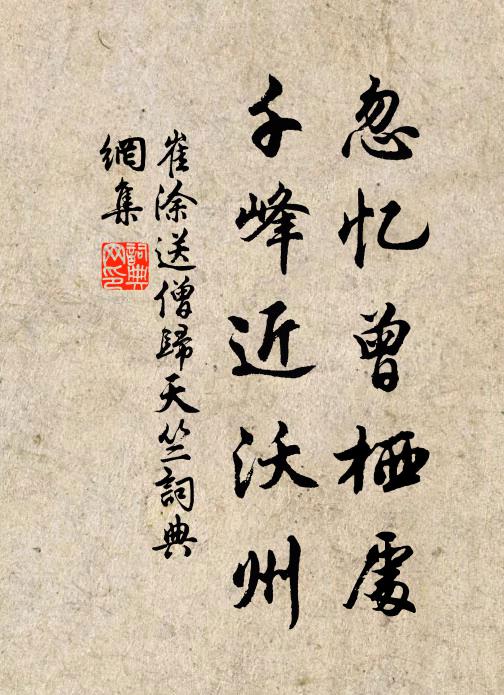 忽忆曾栖處
千峰近沃州
崔涂送僧歸天竺詞典
網集
詞典
网印